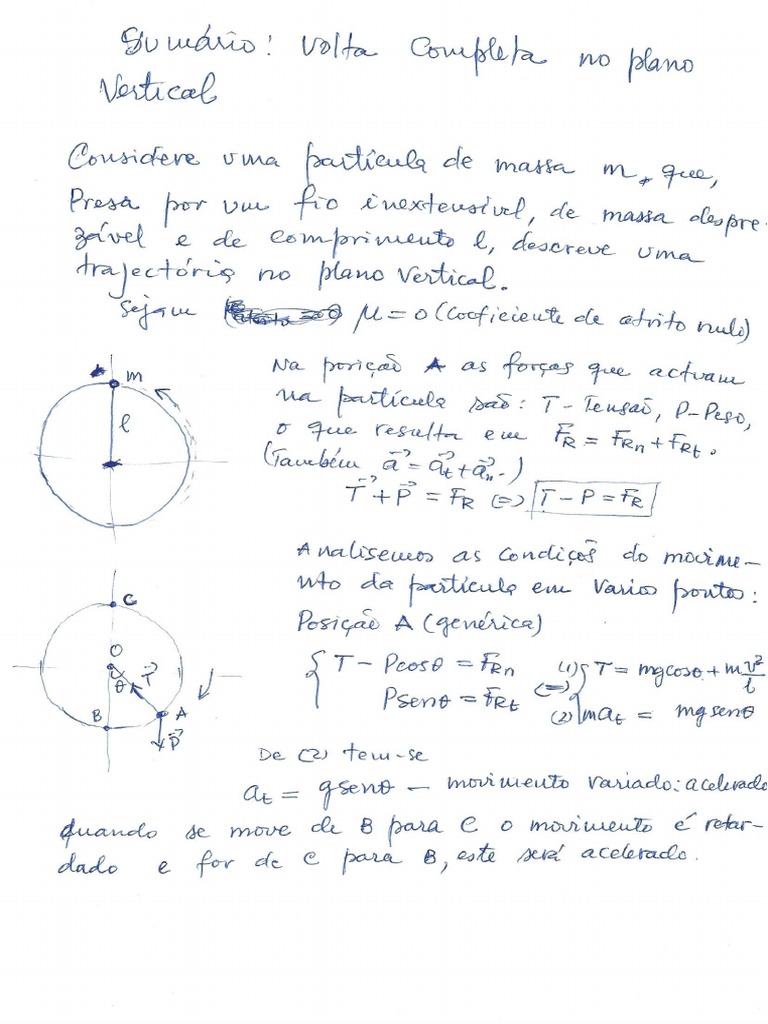 Sumário: Volta Completa no plano
Vertical
Considere uma partícula de massa m, que,
Presa por um fio inextensível, de massa despre-
zável e de comprimento l, descreve uma
trajectória no plano vertical.
Sejam μ = 0 (Coeficiente de atrito nulo)
m
l
Na posição A as forças que actuam
na partícula são: T - Tensão, P - Peso,
o que resulta em F_R = F_Rn + F_Rt.
(Também a⃗ = a⃗_t + a⃗_n.)
T⃗ + P⃗ = F_R (=) T - P = F_R
Analisemos as condiçõs do movime-
nto da partícula em varios pontos:
Posição A (genérica)
C
O
θ
T⃗
B
A
P⃗
{ T - Pcosθ = F_Rn (1) { T = mgcosθ + m v²/l
Psenθ = F_Rt (=) (2) ma_t = mgsenθ
De (2) tem-se
a_t = gsenθ — movimento variado: acelerado
quando se move de B para C o movimento é retar-
dado e for de C para B, este será acelerado.